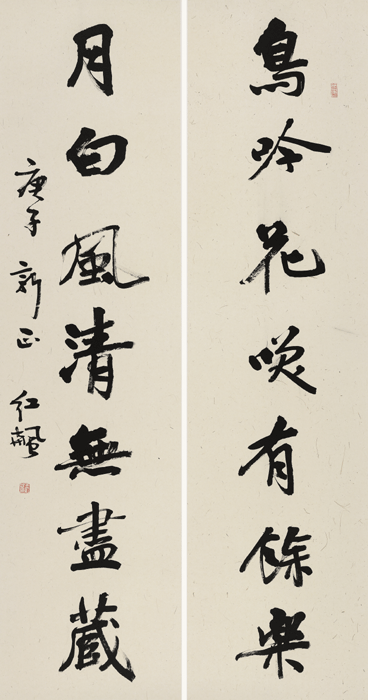 鳥吟花咲有餘樂
月白風清無盡藏
庚子新正 红飙